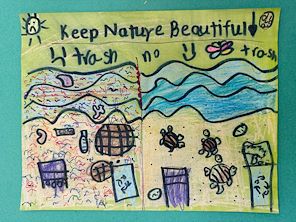 Keep Nature Beautiful
trash no trash